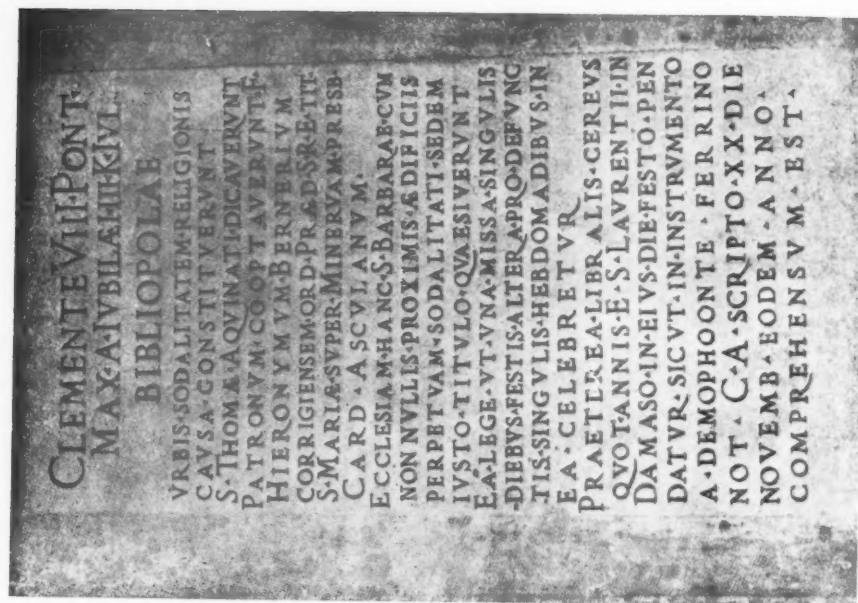 CLEMENTE VIII·PONT·
MAX·A·IVBILÆI·III·K·IVL·
BIBLIOPOLAE
VRBIS·SODALITATEM·RELIGIONIS
CAVSA·CONSTITVERVNT
S·THOMÆ·AQVINATI·DICAVERVNT
PATRONVM·COOPTAVERVNT·F·
HIERONYMVM·BERNERIVM
CORRIGIENSEM·ORD·PRÆD·S·R·E·TIT·
S·MARIÆ·SVPER·MINERVAM·PRESB·
CARD·ASCVLANVM·
ECCLESIAM·HANC·S·BARBARAE·CVM
NONNVLLIS·PROXIMIS·ÆDIFICIIS
PERPETVAM·SODALITATI·SEDEM
IVSTO·TITVLO·QVAESIVERVNT
EA·LEGE·VT·VNA·MISSA·SINGVLIS
DIEBVS·FESTIS·ALTERA·PRO·DEFVNC
TIS·SINGVLIS·HEBDOMADIBVS·IN
EA·CELEBRETVR
PRAETEREA·LIBRALIS·CEREVS
QVOT·ANNIS·E·S·LAVRENTII·IN
DAMASO·IN·EIVS·DIE·FESTO·PEN
DATVR·SICVT·IN·INSTRVMENTO
A·DEMOPHOONTE·FERRINO
NOT·C·A·SCRIPTO·XX·DIE
NOVEMB·EODEM·ANNO·
COMPREHENSVM·EST·